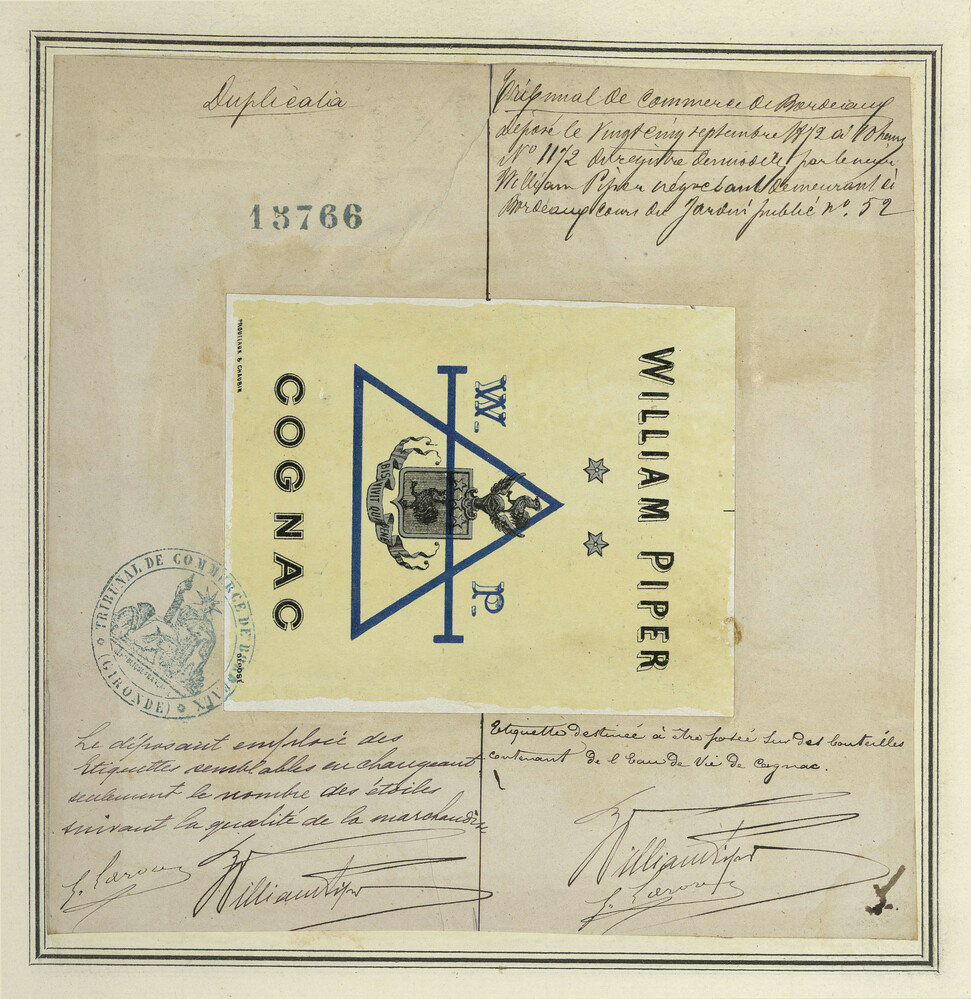 Duplicatia
15766
Tribunal de Commerce de Bordeaux
déposé le Vingt cinq septembre 1872 à 10 heures
N° 1172 du registre des modèles par le sieur
William Piper négociant demeurant à
Bordeaux cours du Jardin public n°. 52
WILLIAM PIPER
W. P.
BIS VIVIT QUI BENE
COGNAC
& CHAUBIN
DÉPOSÉ
TRIBUNAL DE COMMERCE DE BORDEAUX
(GIRONDE)
Le déposant emploie des
Etiquettes semblables en changeant
seulement le nombre des étoiles
suivant la qualité de la marchandise
William Piper
Etiquette destinée à être posée sur des bouteilles
contenant de l'Eau de Vie de Cognac.
William Piper